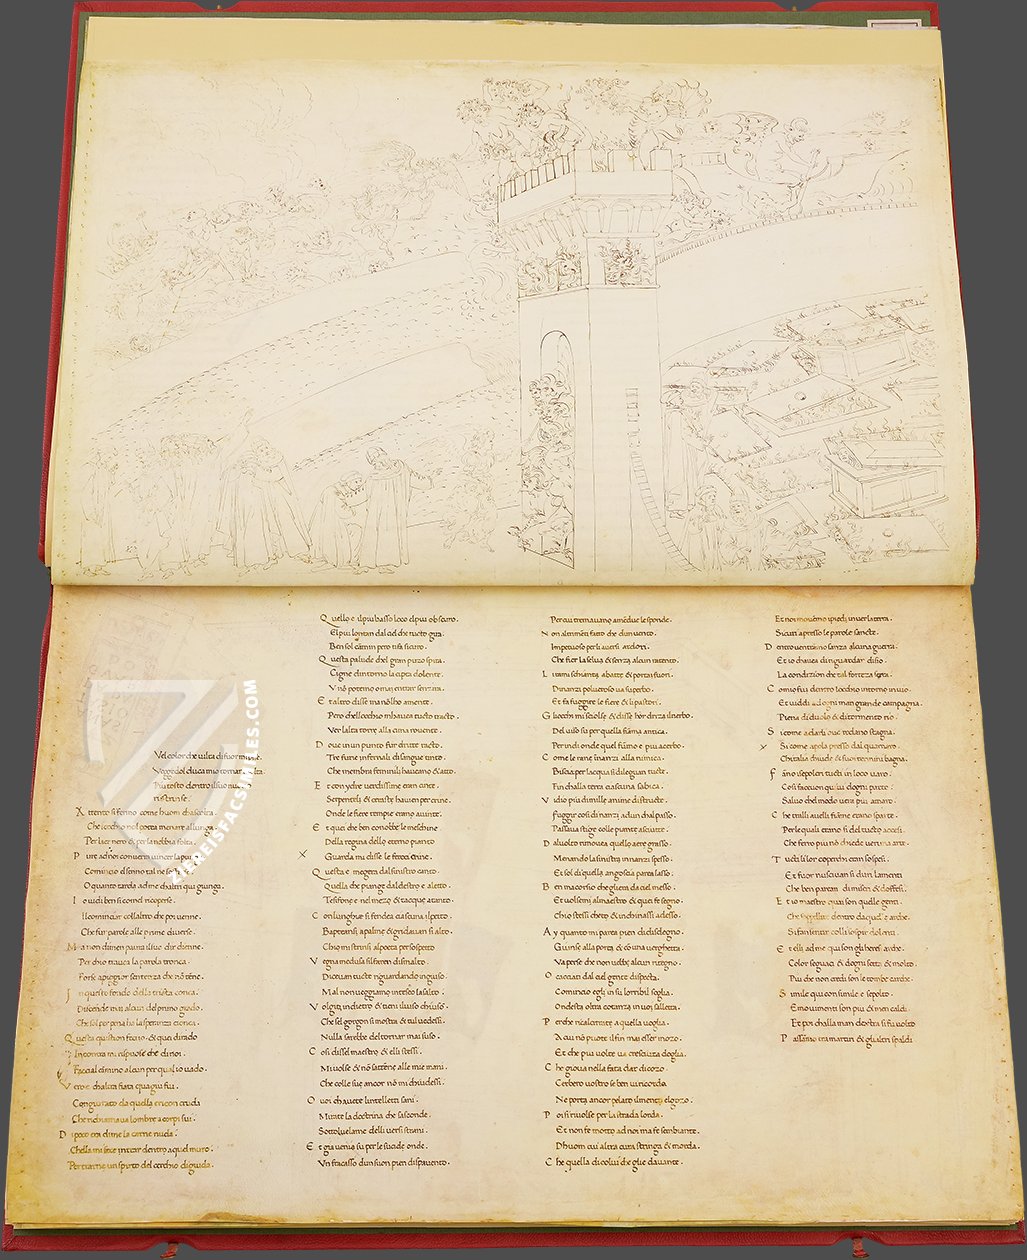 Vel color che vilta di fuor mi
Veggendol duca mio tornare in volta
Piu tosto dentro il suo nuovo
ristrinse.
A ttento si fermo come huom chascolta.
Che locchio nol potea menare allunga.
Per laer nero & per la nebbia folta.
P ure ad noi converra vincer la
Comincio el senno tal ne
O quanto tarda ad me chaltri qui giunga.
I o vidi ben si come ricoperse.
Il cominciar collaltro che poi venne.
Che fur parole alle prime diverse.
M a non dimen paura il suo dir dienne.
Per chio trahea la parola tronca.
Forse a piggior sentenza che nō tēne.
I n questo fondo della trista conca.
Discende mai alcun del primo grado.
Che sol per pena ha la speranza cionca.
Q uesta quistion fecio. & quei di rado
Incontra mi rispuose che di noi.
Faccia l cāmino alcun per qual io vado.
V ero e chaltra fiata qua giu fui.
Congiurato da quella eriton cruda
Che richiamava lombre a corpi sui.
D i poco era di me la carne nuda.
Chella mi fece intrar dentro a quel muro.
Per trarne un spirto del cerchio di giuda.
Q uello e il piu basso loco el piu obscuro.
El piu lontan dal ciel che tucto gira.
Ben so l camin pero ti fa sicuro.
Q uesta palude chel gran puzo spira.
Cigne dintorno la cipta dolente.
V nō potemo omai entrar senz ira.
E t altro disse ma nō lho amente.
Pero che llocchio mhavea tucto tracto.
Ver lalta torre alla cima rovente.
D ove in un punto fur dritte racto.
Tre furie infernali di sangue tinto.
Che membra feminili haveano & atto.
E t con ydre verdissime eran cinte.
Serpentelli & ceraste havien per crine.
Onde le fiere tempie erano avinte.
E t quei che ben conobbe le meschine
Della regina dello eterno pianto
Guarda mi disse le feroci erine.
Q uesta e megera dal sinistro canto.
Quella che piange dal destro e aletto.
Tesifone e nel mezo & tacque a tanto.
C on lunghie si fendea ciascuna il pecto.
Bapteansi a palme & gridavan si alto.
Chio mi strinsi al poeta per sospecto
V egna medusa sil farem di smalto.
Diceuan tucte riguardando in giuso.
Mal non veggiamo inteseo lasalto.
V olgiti indietro & tien il viso chiuso.
Che sel gorgon si mostra & tul vedessi.
Nulla sarebbe del tornar mai suso.
C osi disse l maestro & elli stessi.
Mi volse & nō sattēne alle mie mani.
Che colle sue ancor nō mi chiudessi.
O voi chavete lintelletti sani.
Mirate la doctrina che sasconde.
Sotto l velame delli versi strani.
E t gia venia su per le sucide onde.
Vn fracasso dun suon pien di spavento.
Per cui tremavano amēdue le sponde.
N on altrimēti facto che dun vento.
Impetuoso per li aversi ardori.
Che fier la selva & senza alcun ratento.
L i rami schianta abatte & porta i fiori.
Dinanzi polveroso va superbo.
Et fa fuggire le fiere & li pastori.
G liocchi mi sciolse & disse hor driza il nerbo.
Del viso su per quella fiūma antica.
Per indi onde quel fūmo e piu acerbo.
C ome le rane innanzi alla nimica.
Biscia per lacqua si dileguan tucte.
Fin challa terra ciascuna sabica.
V idio piu di mille anime distructe.
Fuggir cosi dinanzi ad un chal passo.
Passava stige colle piante asciutte.
D al volto rimovea quello aere grasso.
Menando la sinistra innanzi spesso.
Et sol di quella angoscia parea lasso.
B en macorsio che gliera da ciel messo.
Et volsemi al maestro & quei fe segno.
Chio stessi cheto & inchinassi ad esso.
A y quanto mi parea pien di disdegno.
Giunse alla porta & cō una verghetta.
Va perse che non vebbe alcun ritegno.
O cacciati dal ciel gente dispecta.
Comincio egli in su lorribil soglia.
Ondesta oltra cotanza in voi salletta.
P erche ricalcitrate a quella voglia.
A cui nō puote il fin mai esser mozo.
Et che piu volte va cresciuta doglia.
C he giova nella fata dar di cozo.
Cerbero vostro se ben vi ricorda.
Ne porta ancor pelato il mento el gozo.
P oi si rivolse per la strada lorda.
Et non fe motto ad noi ma fe sembiante.
Dhuom cui altra cura stringa & morda.
C he quella di colui che glie davante.
Et noi movēmo i piedi inver la terra.
Sicuri apresso le parole sancte.
D entro ventrāmo sanza alcuna guerra.
Et io chavea di riguardar disio.
La condizion che tal forteza serra.
C omio fui dentro locchio intorno invio.
Et viddi ad ogni man grande campagna.
Piena di duolo & di tormento rio.
S i come ad arli ove rodano stagna.
Si come a pola presso dal quarnaro
Chitalia chiude & suoi termini bagna.
F āno i sepolcri tucti in loco varo.
Cosi facevon quivi dogni parte.
Salvo chel modo vera piu amaro.
C he tralli avelli fiāme erano sparte.
Per le quali erano si del tucto accesi.
Che ferro piu nō chiede veruna arte.
T ucti li lor coperchi eran sospesi.
Et fuor nuscivan si duri lamenti
Che ben parean di miseri & doffesi.
E t io maestro quai son quelle genti.
Che seppellite dentro da quelle arche.
Si fan sentir colli sospir dolenti.
E t elli ad me qui son gli heresiarche.
Co lor seguaci & dogni setta & molto.
Piu che non credi son le tombe carche.
S imile qui con simile e sepolto.
E monimenti son piu & men caldi.
Et poi challa man dextra si fu volto
P assāmo tra martiri & gli altri spaldi
ZIEREISFACSIMILES.COM